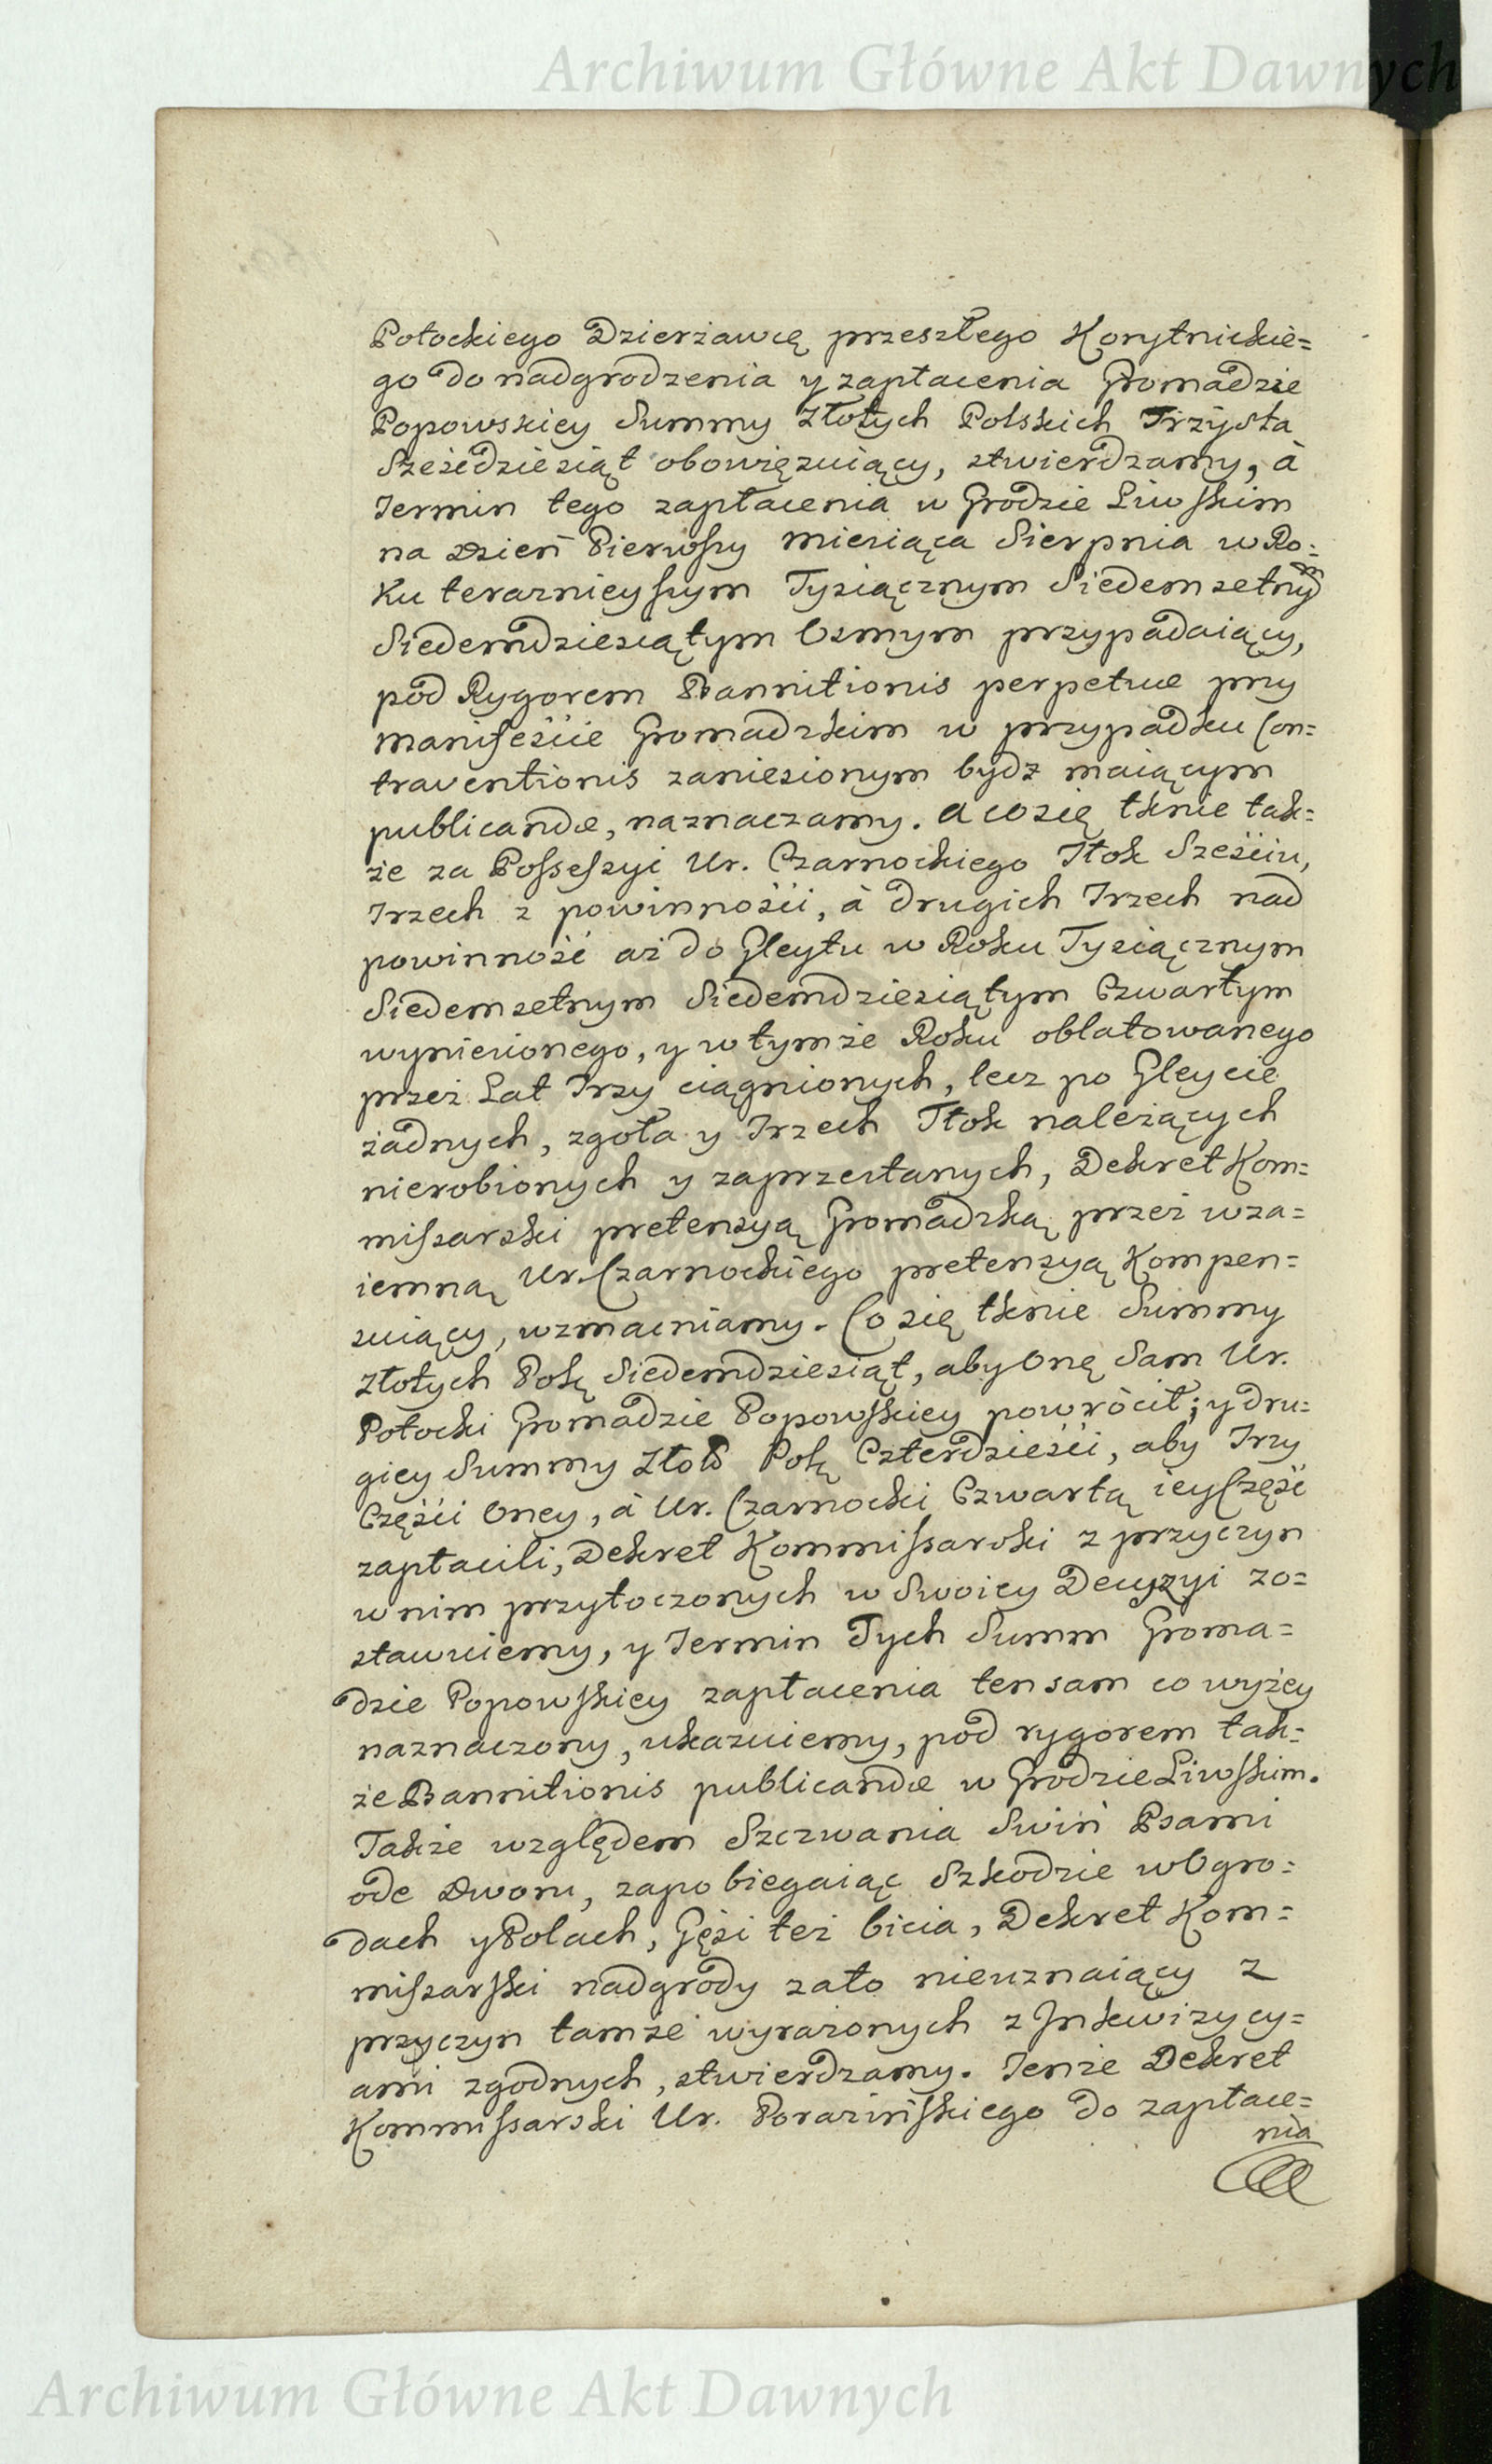 Archiwum Główne Akt Dawnych
Potockiego Dzierżawcę przeszłego Korytnickie=
go do nadgrodzenia y zapłacenia Gromadzie
Popowskiey Summy Złotych Polskich Trzysta
Sześćdziesiąt obowięzuiący, stwierdzamy, à
Termin tego zapłacenia w Grodzie Liwskim
na Dzień Pierwszy miesiąca Sierpnia w Ro=
ku teraznieyszym Tysiącznym Siedemsetnym
Siedemdziesiątym Osmym przypadaiący,
pod Rygorem Bannitionis perpetuæ przy
manifeście Gromadzkim w przypadku Con=
traventionis zaniesionym bydz maiącym
publicandæ, naznaczamy. a co się tknie tak=
że za Possessyi Ur. Czarnockiego Tłok Sześciu,
Trzech z powinności, à drugich Trzech nad
powinność aż do Gleytu w Roku Tysiącznym
Siedemsetnym Siedemdziesiątym Czwartym
wyniesionego, y w tymże Roku oblatowanego
przez Lat Trzy ciągnionych, lecz po Gleycie
żadnych, zgoła y Trzech Tłok należących
nierobionych y zaprzestanych, Dekret Kom=
missarski pretensyą Gromadzką przez wza=
iemną Ur. Czarnockiego pretensyą kompen=
suiący, wzmacniamy. Co się tknie Summy
Złotych Polę Siedemdziesiąt, aby onę Sam Ur.
Potocki Gromadzie Popowskiey powrócił; y dru=
giey Summy Złoł Polę Czterdzieści, aby Trzy
Części oney, à Ur. Czarnocki Czwartą iey Część
zapłacili, Dekret Kommissarski z przyczyn
w nim przytoczonych w Swoiey Decyzyi zo=
stawuiemy, y Termin Tych Summ Groma=
dzie Popowskiey zapłacenia ten sam co wyżey
naznaczony, ukazuiemy, pod rygorem tak=
że Bannitionis publicandæ w Grodzie Liwskim.
Także względem Szczwania Swiń Psami
ode Dworu, zapobiegaiąc Szkodzie w Ogro=
dach y Polach, Gęsi też bicia, Dekret Kom=
missarski nadgrody zato nieuznaiący z
przyczyn tamże wyrażonych z Inkwizycy=
ami zgodnych, stwierdzamy. Tenże Dekret
Kommissarski Ur. Porazińskiego do zapłace=
nia
Archiwum Główne Akt Dawnych